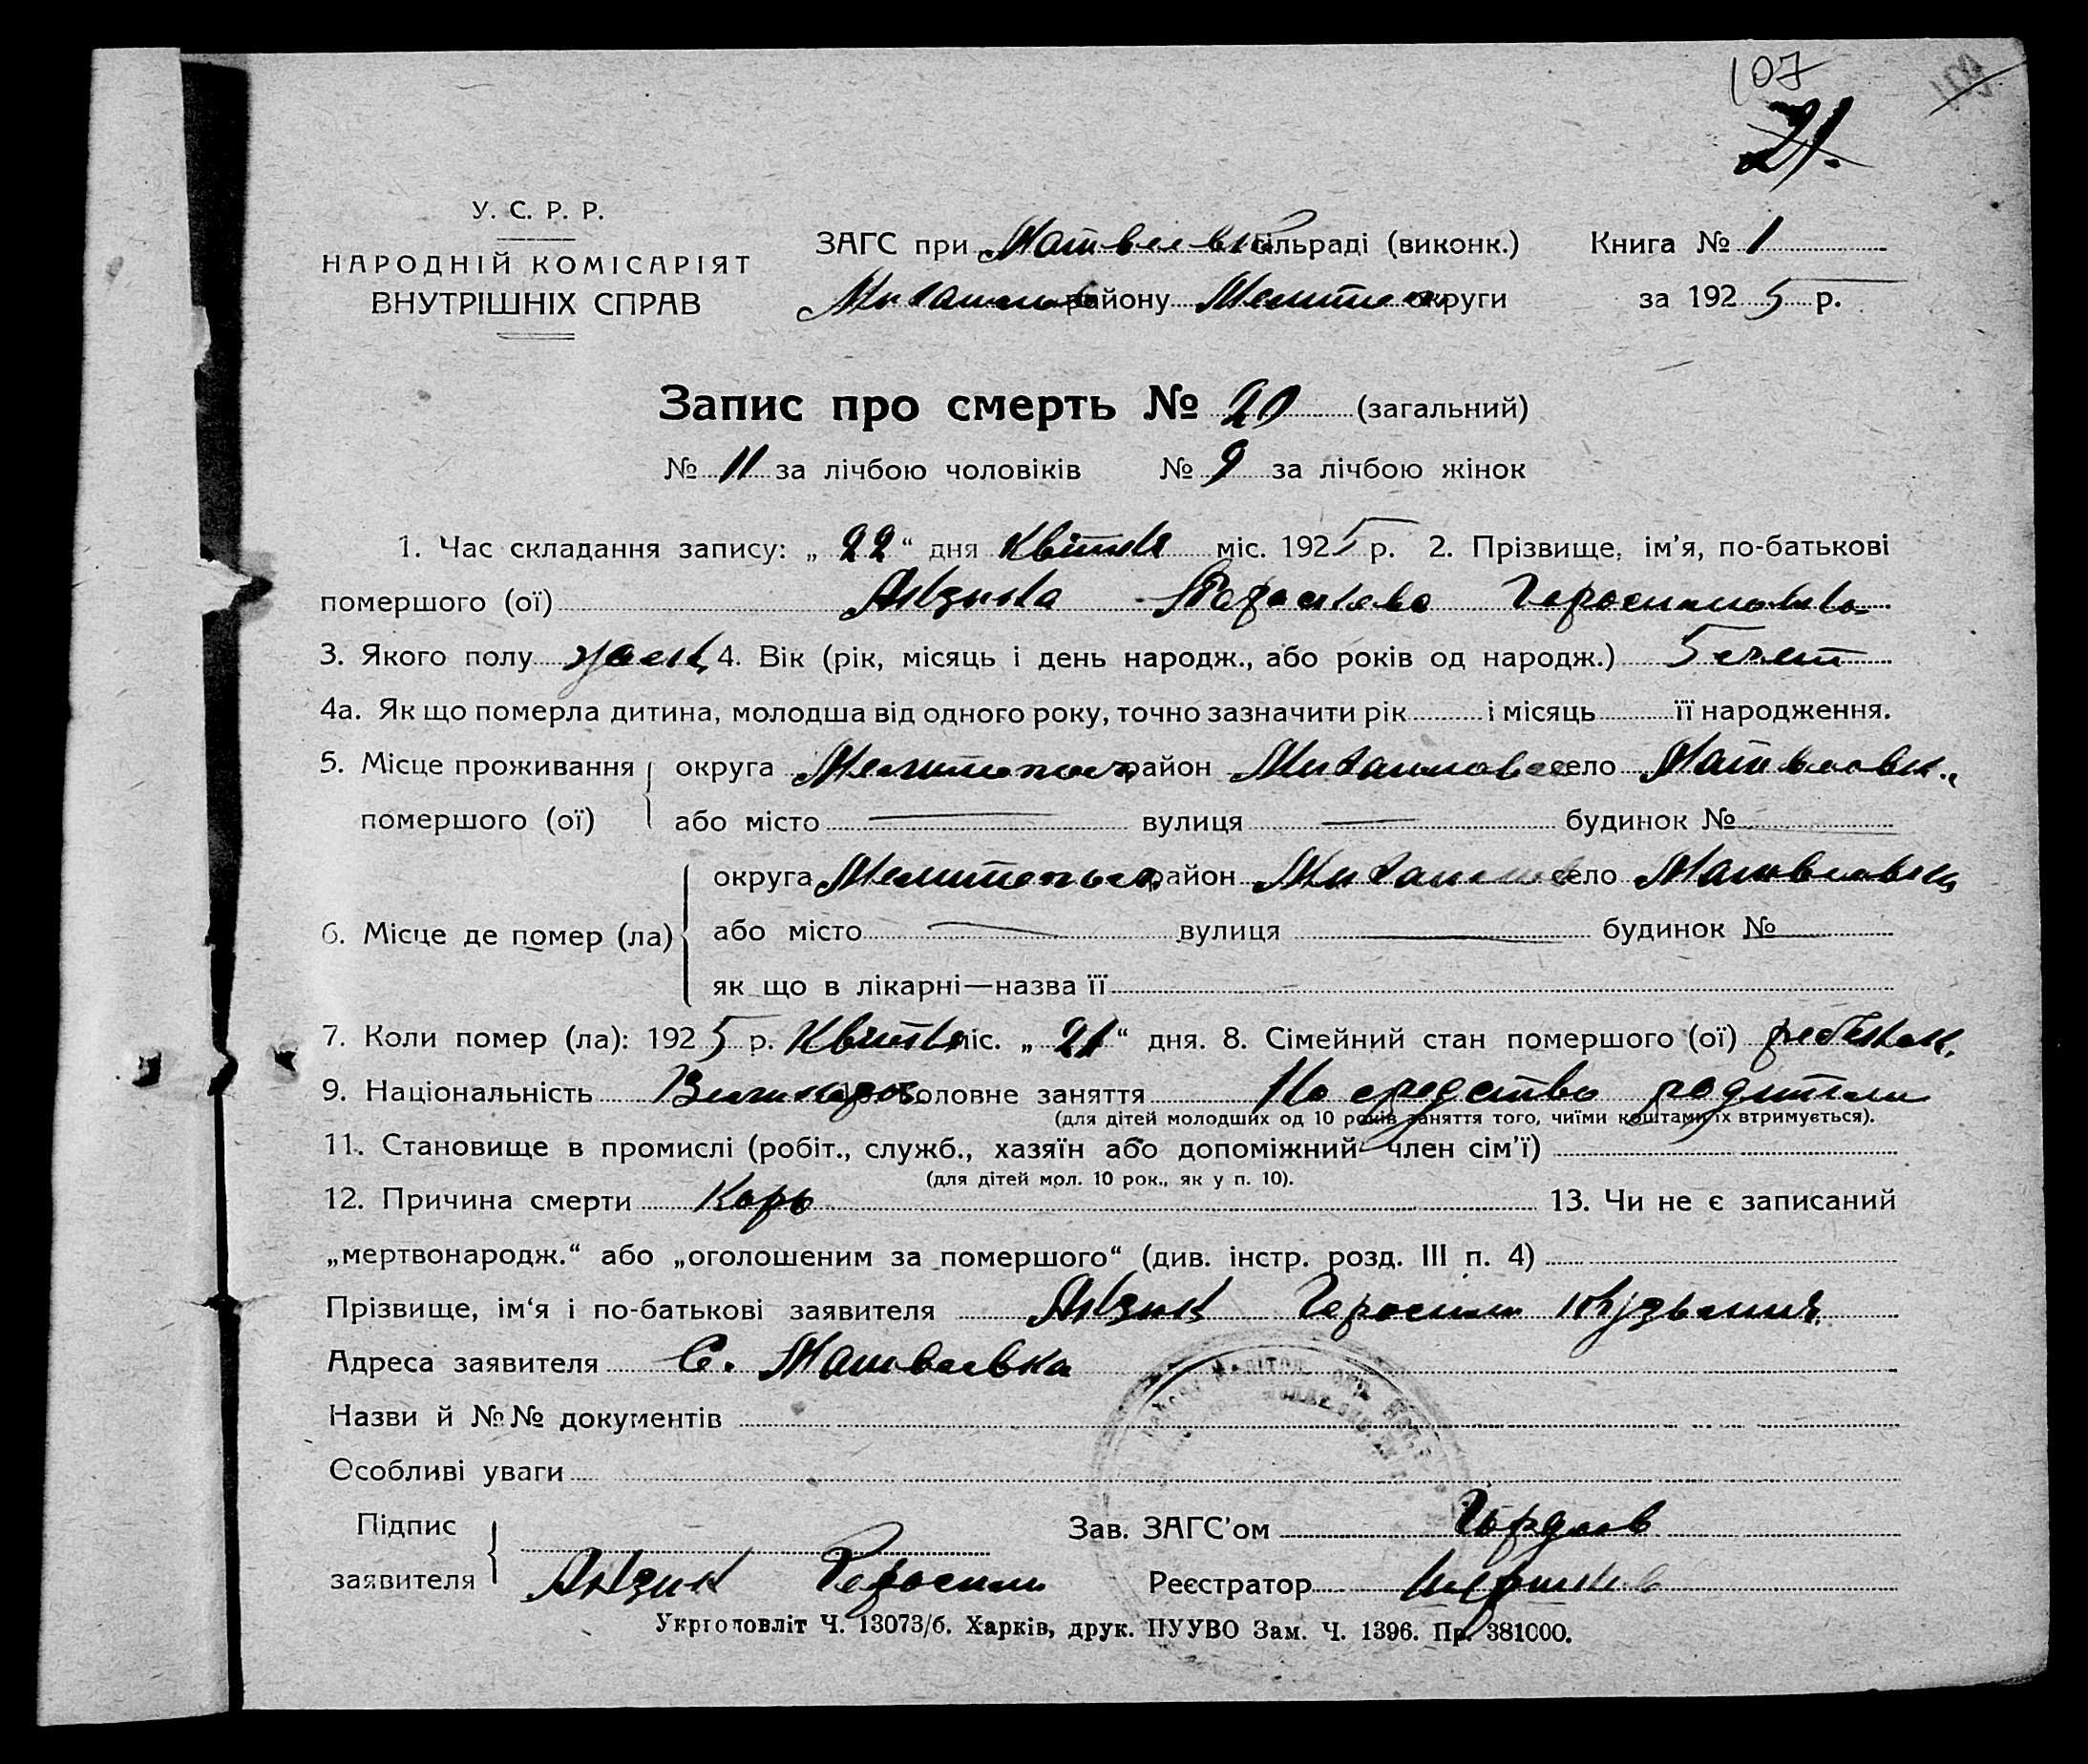 107
21.
У. С. Р. Р.
НАРОДНІЙ КОМІСАРІЯТ
ВНУТРІШНІХ СПРАВ
ЗАГС при Матвеевк сільраді (виконк.) Книга № 1
Михайлов району Мелитоп округи за 1925 р.
Запис про смерть № 20 (загальний)
№ 11 за лічбою чоловіків № 9 за лічбою жінок
1. Час складання запису: „22“ дня Квітня міс. 1925 р. 2. Прізвище, ім’я, по-батькові
помершого (ої) Параскева Геросимовна
3. Якого полу женск 4. Вік (рік, місяць і день народж., або років од народж.) 5 лет
4а. Як що померла дитина, молодша від одного року, точно зазначити рік і місяць її народження.
5. Місце проживання округа Мелитопольск район Михайловск село Матвеевк.
помершого (ої) або місто вулиця будинок №
6. Місце де помер (ла) округа Мелитопольск район Михайлов село Матвеевк
або місто вулиця будинок №
як що в лікарні—назва її
7. Коли помер (ла): 1925 р. Квітня міс. „21“ дня. 8. Сімейний стан помершого (ої) ребенок.
9. Національність Великорос. головне заняття На средства родители
(для дітей молодших од 10 років заняття того, чиїми коштами їх втримується).
11. Становище в промислі (робіт., служб., хазяїн або допоміжний член сім’ї)
(для дітей мол. 10 рок., як у п. 10).
12. Причина смерти Корь 13. Чи не є записаний
„мертвонародж.“ або „оголошеним за помершого“ (див. інстр. розд. III п. 4)
Прізвище, ім‘я і по-батькові заявителя Геросим Кузьмич
Адреса заявителя С. Матвеевка
Назви й №№ документів
Особливі уваги
Підпис заявителя Геросим
Зав. ЗАГС’ом Гордеев
Реєстратор
Укрголовліт Ч. 13073/б. Харків, друк. ПУУВО Зам. Ч. 1396. Пр. 381000.